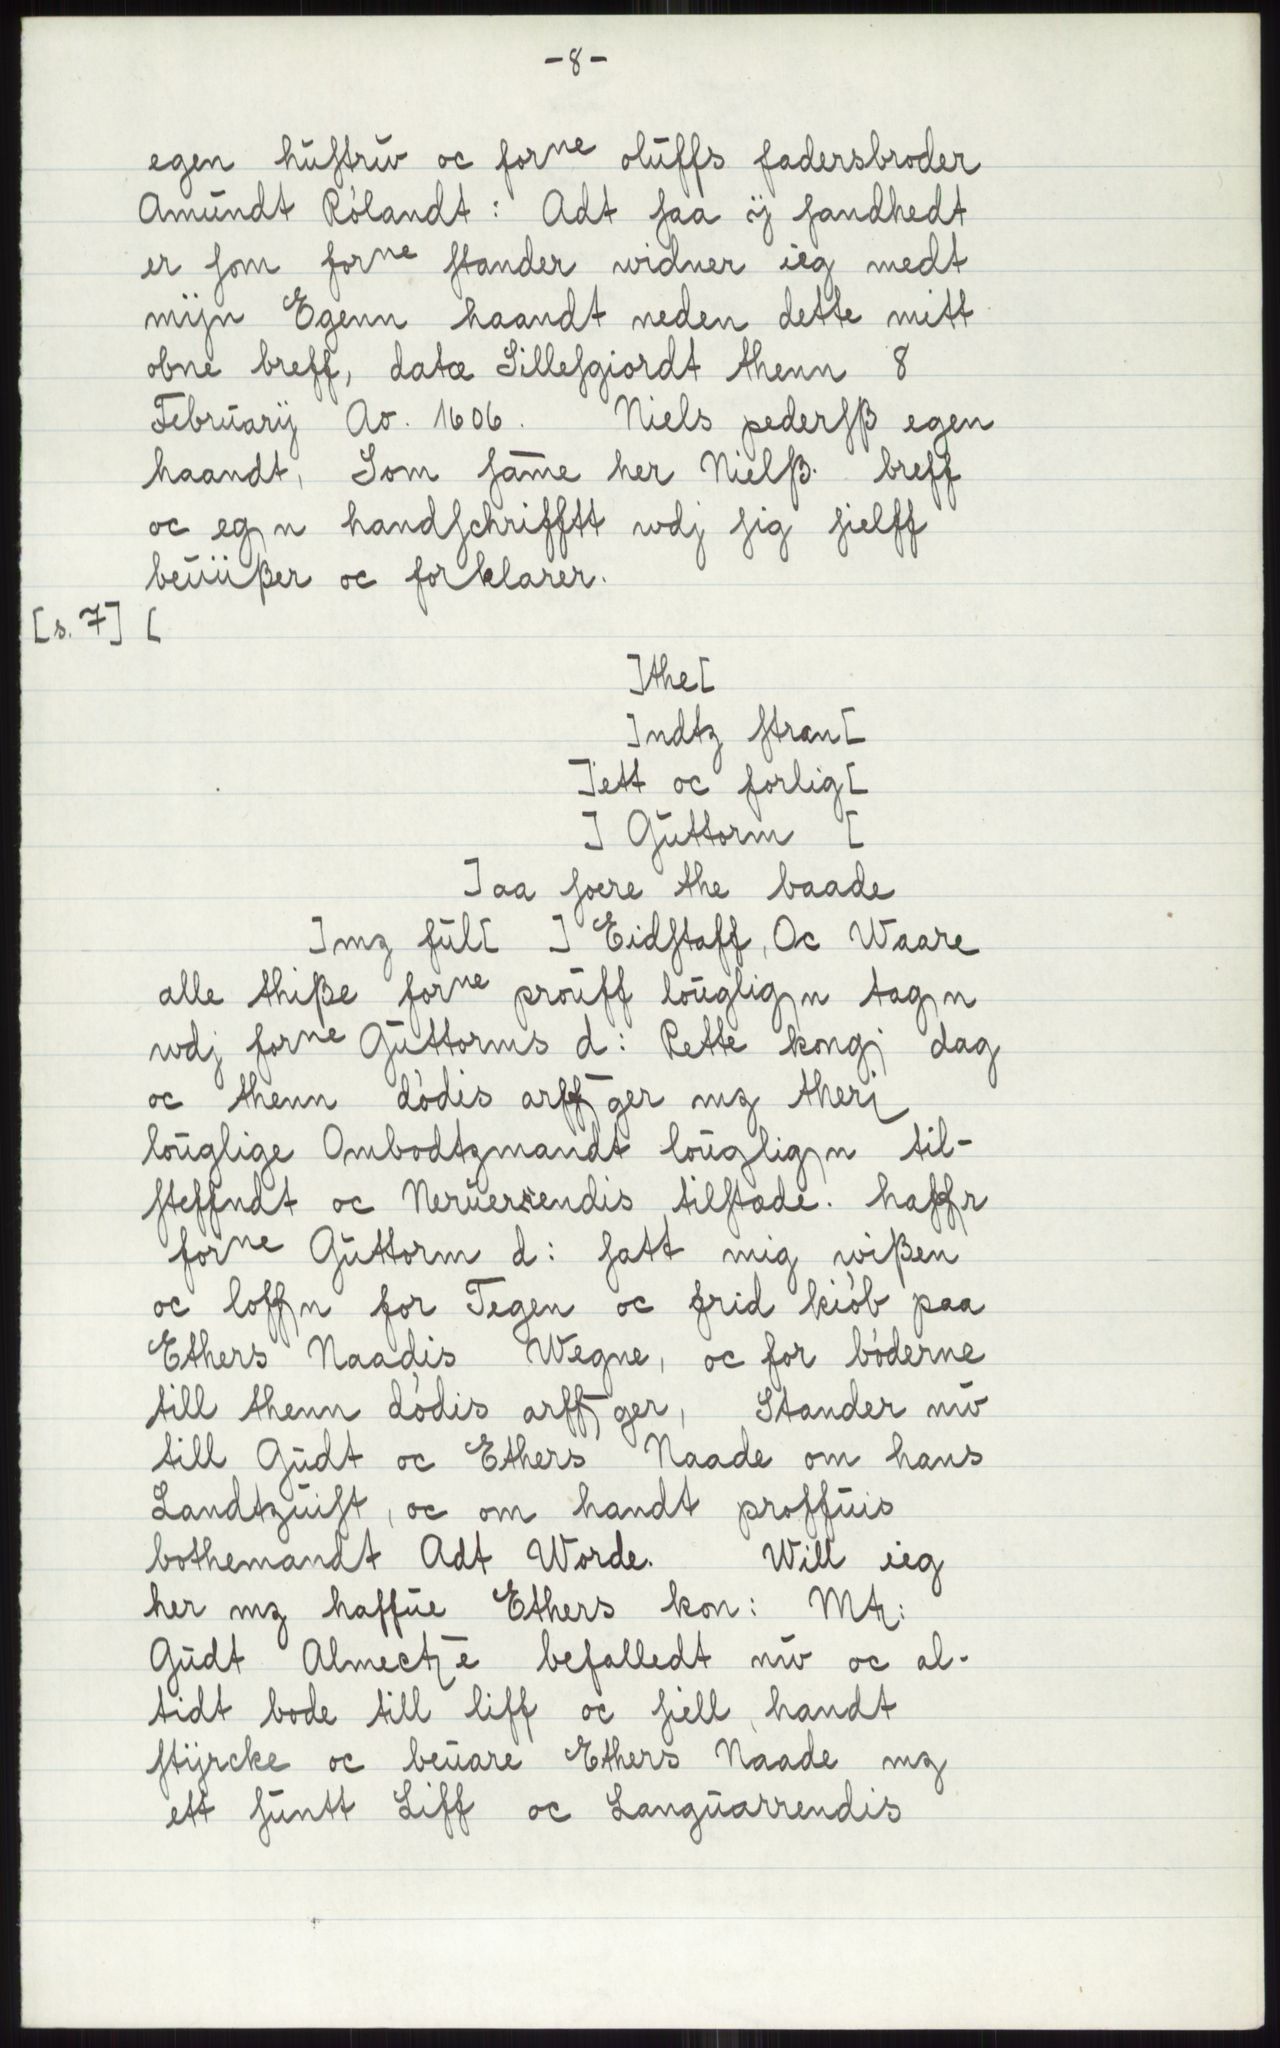 -8-
egen hustrŭv oc forne olŭffs fadersbroder
Amŭndt Rólandt: Adt saa ÿ sandhedt
er som forne stander widner ieg medt
mÿn Egenn haandt neden dette mitt
obne breff, datæ Sillesgiordt thenn 8
Februarÿ Ao. 1606. Niels pederssß egen
haandt, Som sāme her Nielß. breff
oc egn handschrifftt wdj sig sielff
beŭüßer oc forklarer.
[s. 7] [
]the[
]ndtz stran[
]ett oc forlig[
] Gŭttorm [
]aa soere the baade
]mz fŭl[ ] Eidstaff, Oc Waare
alle thiße forne proŭff loŭglign tagn
wdj forne Gŭttorms d: Rette kongj dag
oc thenn dódis arffger mz theri
loŭglige Ombodtzmandt loŭglign til-
steffndt oc Nerŭerendis tilstæde. haffr
forne Gŭttorm d: satt mig wißen
oc loffn for Tegen oc frid kiób paa
Ethers Naadis Wegne, oc for bóderne
till thenn dódis arffger, Stander nŭv
till Gŭdt oc Ethers Naade om hans
Landtzŭist, oc om handt proffŭis
bothemandt Adt Worde. Will ieg
her mz haffŭe Ethers kon: Mtz:
Gŭdt Almectzē befalledt nŭv oc al-
tidt bode till liff oc siell, handt
stÿrcke oc beŭare Ethers Naade mz
ett sŭntt Liff oc Langŭarrendis